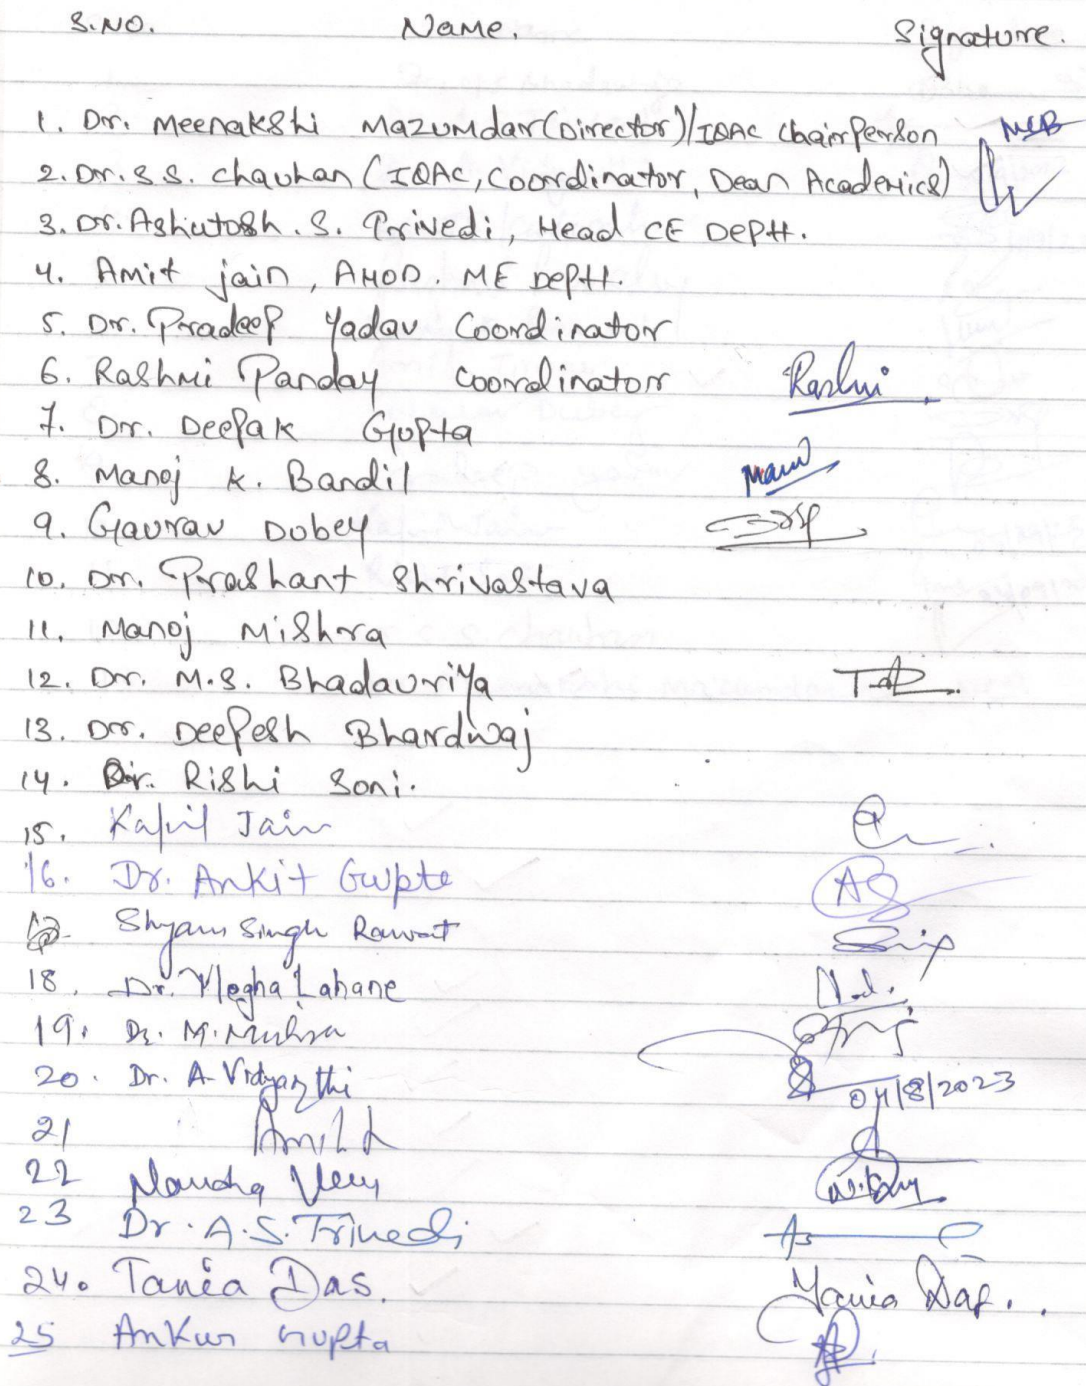 S.NO. Name. Signature.
1. Dr. Meenakshi Mazumdar (Director)/IQAC Chairperson
2. Dr. S.S. Chauhan (IQAC, Coordinator, Dean Academics)
3. Dr. Ashutosh. S. Trivedi, Head CE Deptt.
4. Amit jain, AHOD. ME Deptt.
5. Dr. Pradeep Yadav Coordinator
6. Rashmi Panday Coordinator Rashmi
7. Dr. Deepak Gupta
8. Manoj K. Bandil
9. Gaurav Dubey
10. Dr. Prashant Shrivastava
11. Manoj Mishra
12. Dr. M.S. Bhadauriya
13. Dr. Deepesh Bhardwaj
14. Dr. Rishi Soni.
15. Kapil Jain
16. Dr. Ankit Gupta AG
Shyam Singh Rawat
18. Dr. Megha Lahane
19. Dr. M. Mishra
20. Dr. A Vidyarthi 04/8/2023
21
22
23 Dr. A.S. Trivedi
24. Tania Das. Tania Das.
25 Ankur Gupta